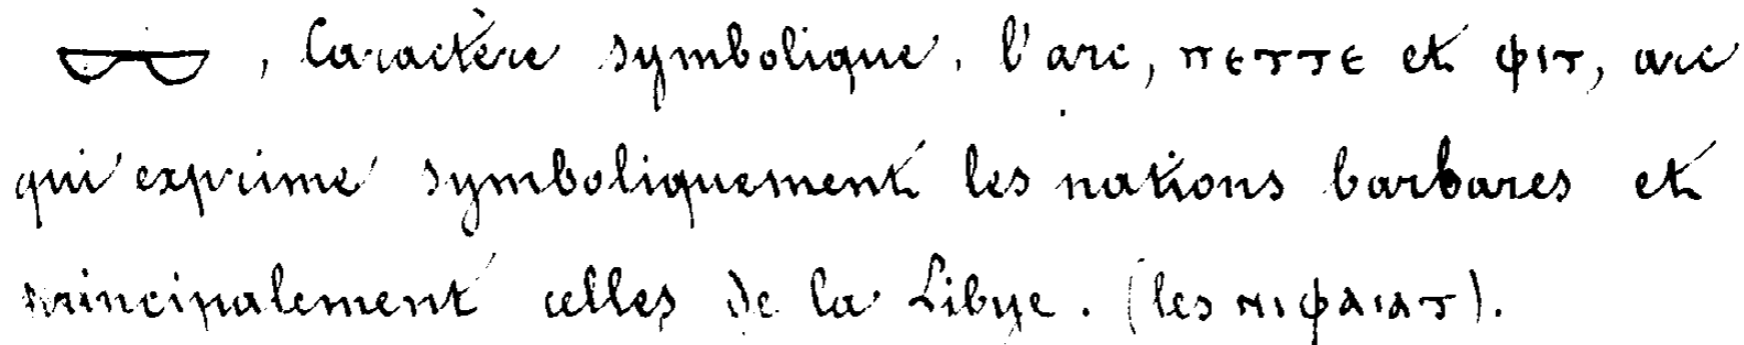 , Caractère symbolique. l'arc, ⲡⲉⲧⲧⲉ et ⲫⲓⲧ, arc
qui exprime symboliquement les nations barbares et
principalement celles de la Libye. (les ⲛⲓⲫⲁⲓⲁⲧ).